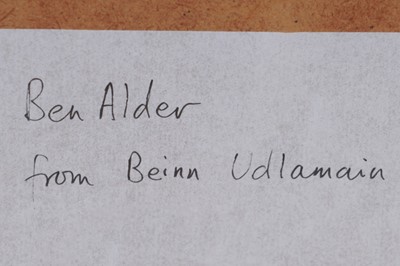 Ben Alder
from Beinn Udlamain